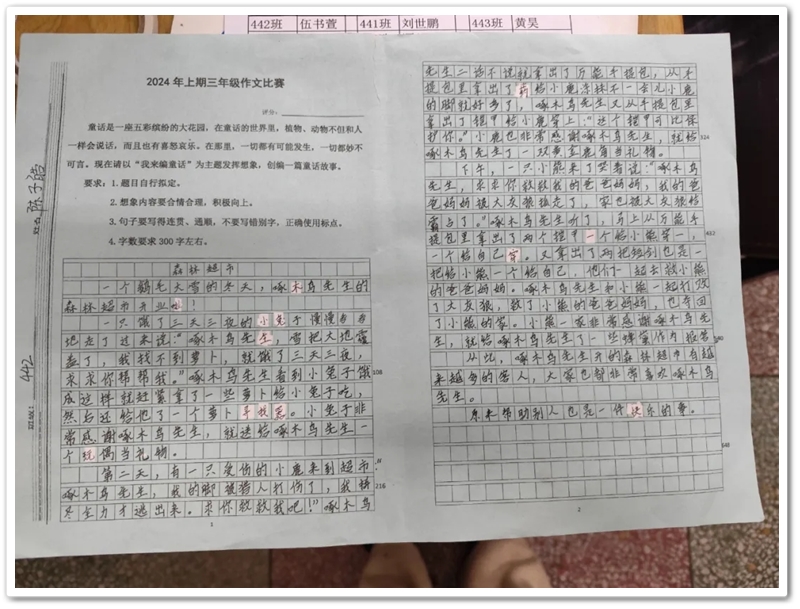 442班 伍书萱 441班 刘世鹏 443班 黄昊
2024 年上期三年级作文比赛
评分：
童话是一座五彩缤纷的大花园，在童话的世界里，植物、动物不但和人
一样会说话，而且也有喜怒哀乐。在那里，一切都有可能发生，一切都妙不
可言。现在请以“我来编童话”为主题发挥想象，创编一篇童话故事。
要求：1. 题目自行拟定。
2. 想象内容要合情合理，积极向上。
3. 句子要写得连贯、通顺，不要写错别字，正确使用标点。
4. 字数要求 300 字左右。
陈子浩
442
森林超市
一个鹅毛大雪的冬天，啄木鸟先生的
森林超市开业啦！
一只饿了三天三夜的小兔子慢慢
地走了过来说：“啄木鸟先生，雪把大地覆
盖了，我找不到萝卜，就饿了三天三夜，
求求你帮帮我。”啄木鸟先生看到小兔子饿
108
成这样就赶紧拿了一些萝卜给小兔子吃，
然后还给他了一个萝卜。小兔子非
常感谢啄木鸟先生，就送给啄木鸟先生一
个玩偶当礼物。
第二天，有一只受伤的小鹿来到超市：“
啄木鸟先生，我的脚被猎人打伤了，我
216
尽全力才逃出来。求你救救我吧！”啄木鸟
1
先生二话不说就拿出了万能手提包，从手
提包里拿出了药给小鹿涂抹不一会儿小鹿
的脚就好多了，啄木鸟先生又从手提包里
拿出了铠甲给小鹿穿上：“这个铠甲可以保
护你。”小鹿也非常感谢啄木鸟先生，就给
324
啄木鸟先生了一双黄金鹿角当礼物。
下午，一只小熊来了哭着说：“啄木鸟
先生，求求你救救我的爸爸妈妈，我的爸
爸妈妈被大灰狼抓走了，家也被大灰狼给
霸占了。”啄木鸟先生听了，马上从万能手
提包里拿出了两个铠甲一个给小熊穿一，
432
一个给自己穿。又拿出了两把短剑也是一
把给小熊一个给自己，他们一起去救小熊
的爸爸妈妈。啄木鸟先生和小熊一起打败
了大灰狼，救了小熊的爸爸妈妈，也夺回
了小熊的家。小熊一家非常感谢啄木鸟先
生，就给啄木鸟先生了一些蜂蜜作为报答
540
从此，啄木鸟先生开的森林超市有越
来越多的客人，大家也都非常喜欢啄木鸟
先生。
原来帮助别人也是一件快乐的事。
648
2